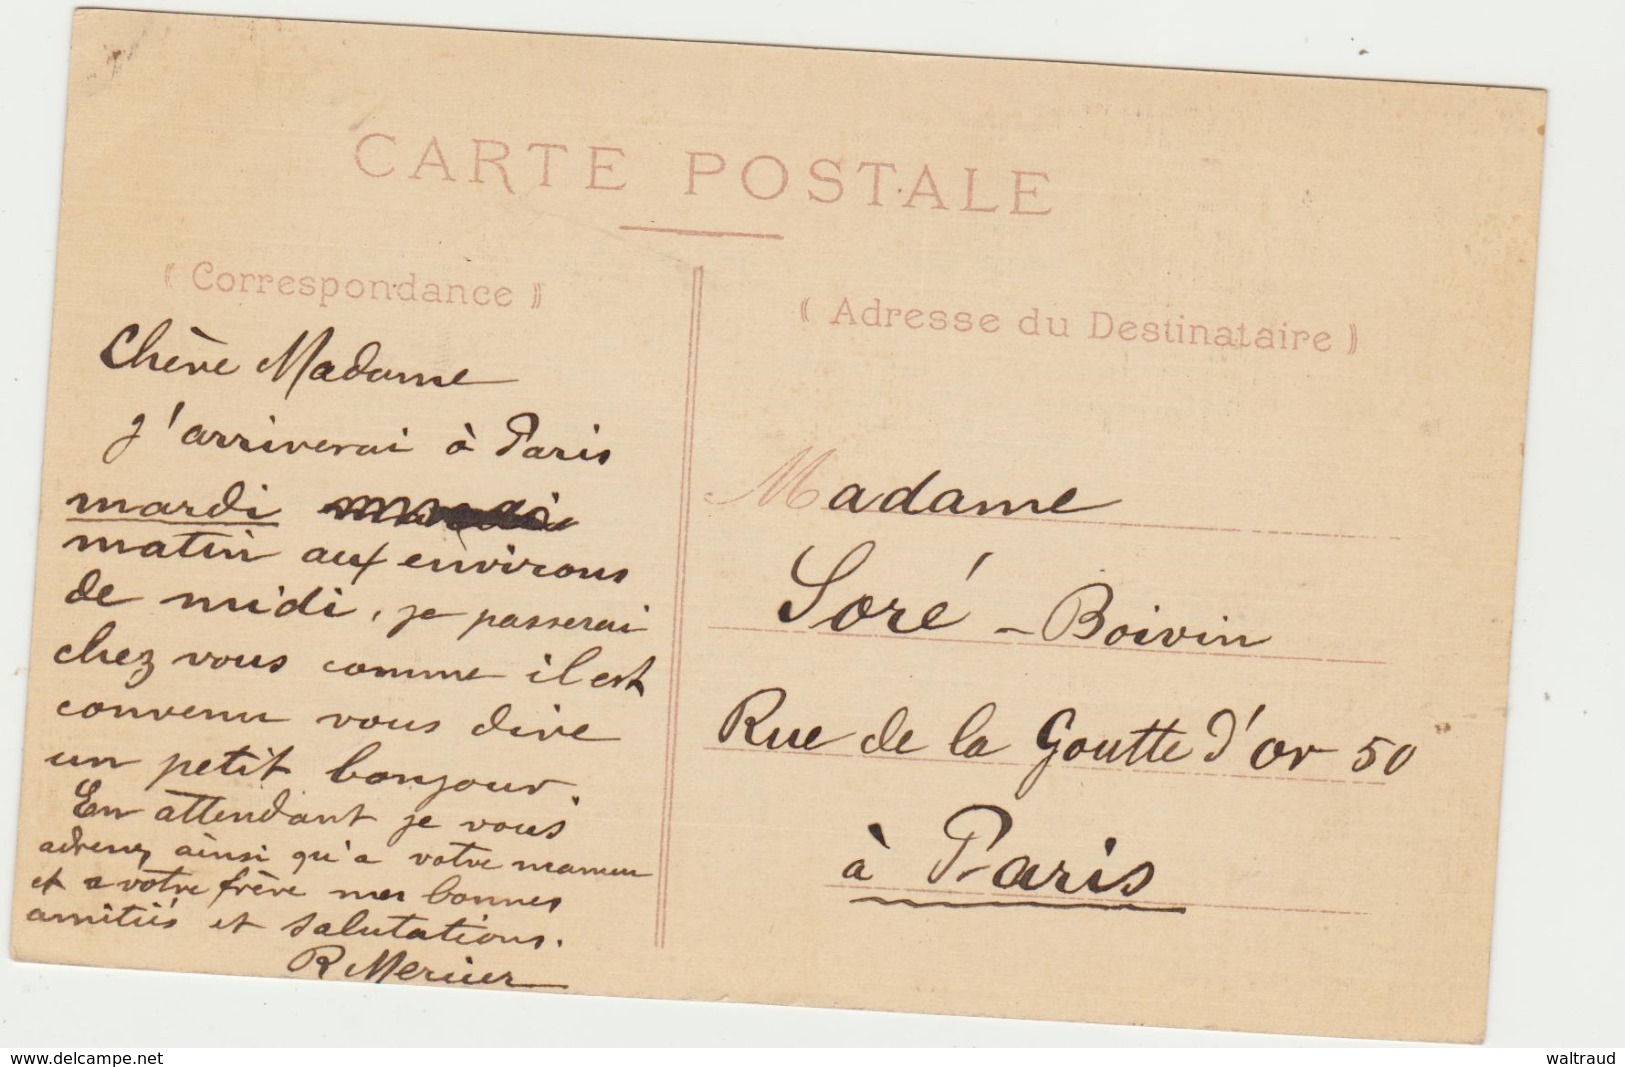 CARTE POSTALE
⟪ Correspondance ⟫
Chère Madame
j'arriverai à Paris
mardi
matin aux environs
de midi, je passerai
chez vous comme il est
convenu vous dire
un petit bonjour.
En attendant je vous
adresse, ainsi qu'a votre maman
et a votre frère mes bonnes
amitiés et salutations.
R Mercier
⟪ Adresse du Destinataire ⟫
Madame
Soré - Boivin
Rue de la Goutte d'or 50
à Paris
delcampe.net
waltraud